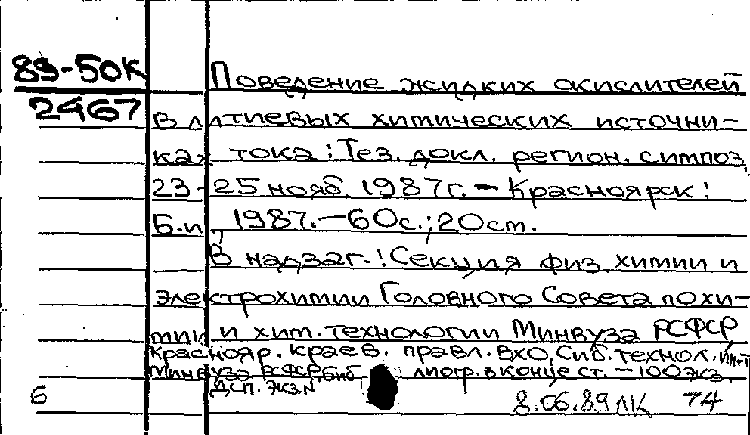 89-50К
2467
Поведение жидких окислителей
в литиевых химических источни-
ках тока: Тез. докл. регион. симпоз,
23-25 нояб. 1987г. - Красноярск:
Б.и., 1987. - 60с.; 20см.
В надзаг.: Секция физ. химии и
электрохимии Головного Совета по хи-
мии и хим. технологии Минвуза РСФСР,
Краснояр. краев. правл. ВХО, Сиб. технол. ин-т
Минвуза РСФСР. Библиогр. в конце ст. - 100 экз
ДСП. Экз. N
6
8.06.89 ЛК 74